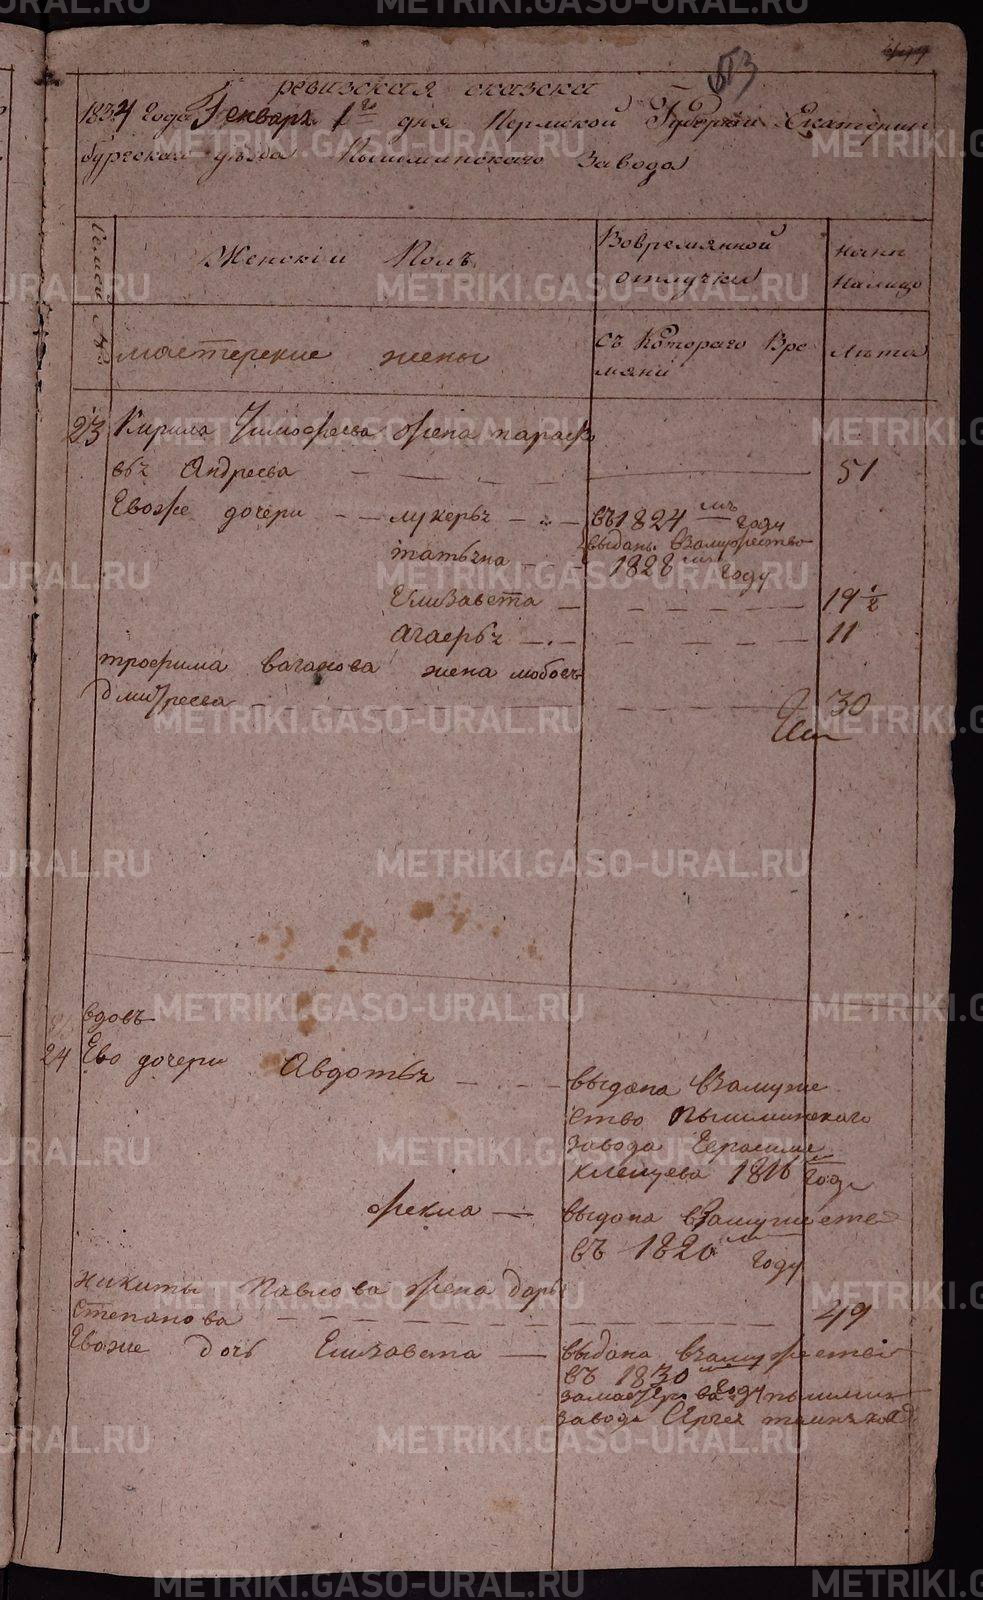 513
ревизская сказка
1834 года Генваря 1го дня Пермской Губернии Екатерин
бургскаго уезда Пышминскаго завода
Семьи №
Женскій Полъ
Вовремянной
отлучки
Ныне
Налицо
мастерские жены
съ Котораго Вре
мяни
Лѣта
23 Кирила Тимофеева жена параско
вья Андреева 51
Евоже дочери лукерья въ 1824мъ году
выданы взамужество
татьяна 1828мъ году
Елизавета 19 1/2
агаерья 11
трофима ваганова жена любовь
дмитреева 30
вдовъ
24 Ево дочери Авдотья выдана взамуже
ство Пышминскаго
завода Герасима
клепцева 1816 году
фекла выдана взамужество
въ 1820 году
никиты Павлова жена дарья
степанова 49
Евоже дочь Елизавета выдана взамужество
въ 1830 году
завода Сергея
METRIKI.GASO-URAL.RU